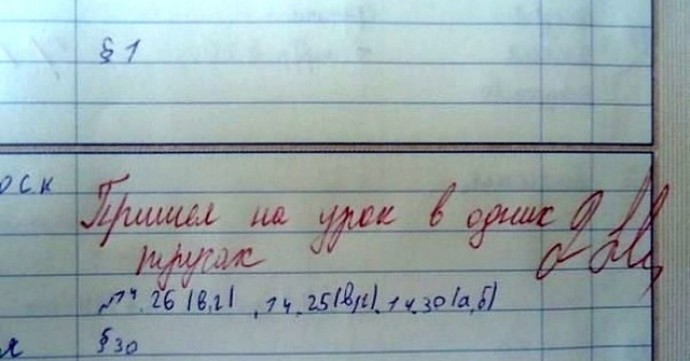 § 1
оск
Пришел на урок в одних
трусах
№14.26(в,г), 14.25(в,г), 14.30(а,б)
я
§ 30